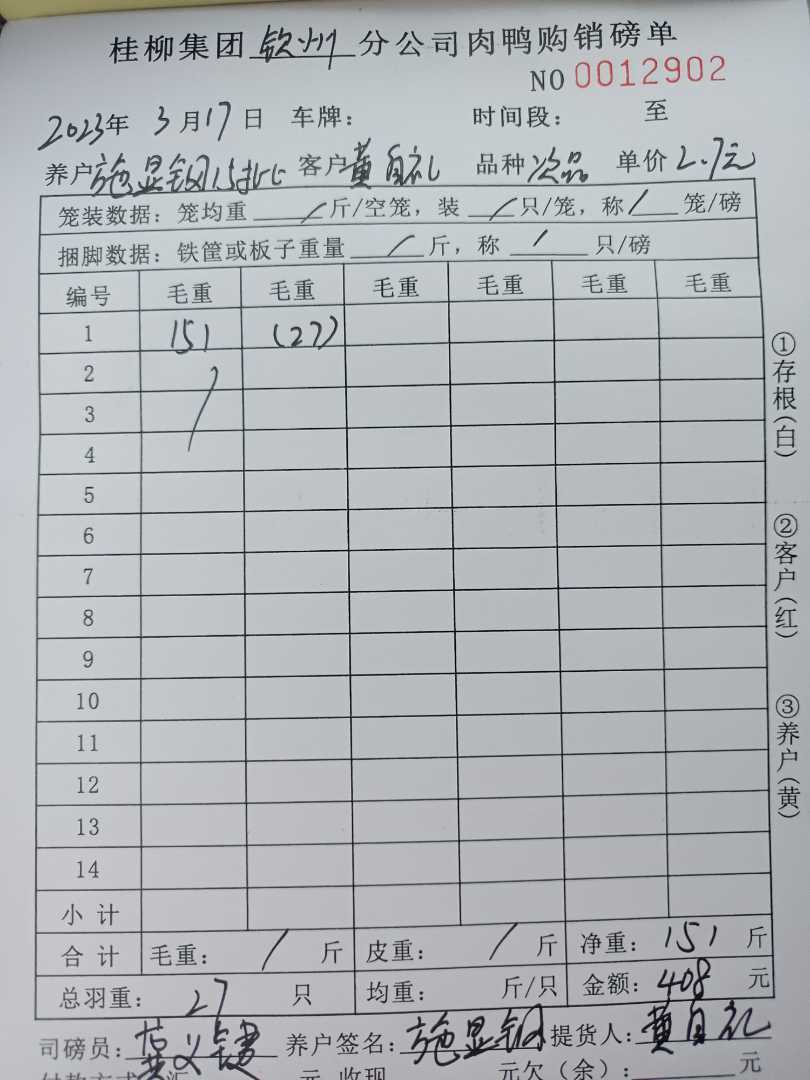 桂柳集团钦州分公司肉鸭购销磅单
NO 0012902
2023年 3月17日 车牌: 时间段: 至
养户 施显钢 客户 黄自礼 品种 次品 单价 2.7元
笼装数据: 笼均重 / 斤/空笼, 装 / 只/笼, 称 / 笼/磅
捆脚数据: 铁筐或板子重量 / 斤, 称 / 只/磅
编号 毛重 毛重 毛重 毛重 毛重 毛重
1 151 (27)
2 /
3
4
5
6
7
8
9
10
11
12
13
14
小计
合计 毛重: / 斤 皮重: / 斤 净重: 151 斤
总羽重: 27 只 均重: 斤/只 金额: 408 元
司磅员: 养户签名: 施显钢 提货人: 黄自礼
付款方式 汇 元 收现 元欠(余): 元
①存根(白)
②客户(红)
③养户(黄)